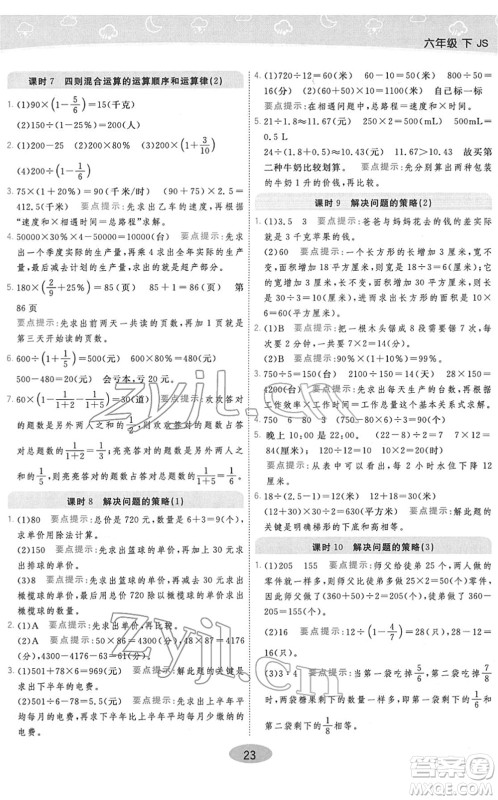 六年级 下 JS
课时 7 四则混合运算的运算顺序和运算律(2)
1. (1)90×(1-5/6)=15(千克)
(2)150÷(1-25%)=200(人)
2. (1)200-25 (2)200×80% (3)200×3/10
(4)200÷(1-1/6)
3. 75×(1+20%)=90(千米/时) (75+90)×5/2=
412.5(千米) 要点提示:先求出乙车的速度,再根据
“速度和×相遇时间=总路程”求出答案。
4. 50000×30%×4-50000=10000(台) 要点提示:先求
出一个季度实际的生产量,再求出全年实际的生产量,
最后减去计划的生产量,就求出了超产的生产量。
5. 180×(2/9+25%)=85(页) 85+1=86(页) 第
86 页
要点提示:先求出前两天一共读的页数,再加 1 就是
第三天开始读的页数。
6. 600÷(1+1/5)=500(元) 600÷(1-1/5)=480(元)
500-480=20(元) 会亏本,亏 20 元。
7. 60×(1-1/(1+2)-1/(1+5))=30(道) 要点提示:欢欢答对
的题数是另外两人答对题数和的 1/2,则欢欢答对的题
数占答对总题数的 1/3;亮亮答对的题数是另外两人答
对题数和的 1/5,则亮亮答对的题数占答对总题数的 1/6。
课时 8 解决问题的策略(1)
1. (1)80 要点提示:总价是 720 元,数量是 6+3=9(个),
求单价用除法计算。
(2)150 要点提示:先求出篮球的单价,再求出橄榄球
的单价。
(3)120 要点提示:先求出橄榄球的总价,再求出
橄榄球的数量。
2. (1)A 要点提示:720 是总价,6 是数量,求单价用除法。
(2)A 要点提示:50×86=4300(分) 48×87=4176
(分) 4300-4176-63=61(分)
3. (1)501+78×6=969(元) 要点提示:此题的关键是
求出下半年的电费。
(2)501÷6=83.5(元) 要点提示:先求出上半年平均
每月的电费,再求出下半年比上半年平均每月节约的
电费。
4. (1)720÷12=60(米) (2)60×5=300(米) 800÷50=
16(分) (3)(60+50)×12=1320(米) 自己标一标
要点提示:在相遇问题中,总路程=速度和×时间。
5. 21÷1.8≈11.67(元) 250×2=500(mL) 500mL=
0.5 L
24÷(1.8+0.5)≈10.43(元) 11.67>10.43 故买第
二种牛奶比较划算。 要点提示:先分别算出两种包
装的牛奶 1 升的价钱,再比较。
课时 9 解决问题的策略(2)
1. (1)3.5 3 要点提示:爸爸与妈妈花去的钱之差就
是 2 千克苹果的钱。
(2)60 要点提示:一个长方形的长增加 3 厘米,宽不
变,面积增加 18 平方厘米,则宽是 6 厘米;宽增加 3 厘
米,长不变,面积增加 30 平方厘米,则长是 10 厘米。
知道了长和宽,进而求出长方形的面积是 60 平方厘米。
2. (1)B 要点提示:把一根木头锯成 6 段需要锯 5 次。
3. 750÷5=150(台) 1200÷150=8(天) 150×(5+8)
=1950(台) 要点提示:先求出工作效率,再根据
工作效率×工作时间=工作总量求出这批任务的数量。
4. 750 6 80 3 9
5. 晚上 10:00-20:00=2(时) (22-8)÷2×12=
84(厘米) 要点提示:先求出每 2 小时水位下降 12
厘米。
6. 18÷(2.5-1)=12(米) 12×2.5=30(米)
(12+30)×18÷2=378(平方米) 要点提示:此题
的关键是明确梯形的下底减去上底等于高。
课时 10 解决问题的策略(3)
1. (1)205 155 要点提示:师父比徒弟先完成自己的
零件,此时徒弟还差 50 个没有完成,则师父比徒弟一
共多加工 50 个零件。
(2)16 要点提示:12÷(1-4/7)=28(元) 28-12=
16(元)
(3)3:2 要点提示:当第一袋吃掉 5/6,第二袋吃掉 7/8
时,两袋糖果剩下的颗数相同,即第一袋剩下的 1/6 和
第二袋剩下的 1/8 相等。
23
zyjl.cn
zyjl.cn
作业精灵
答案圈